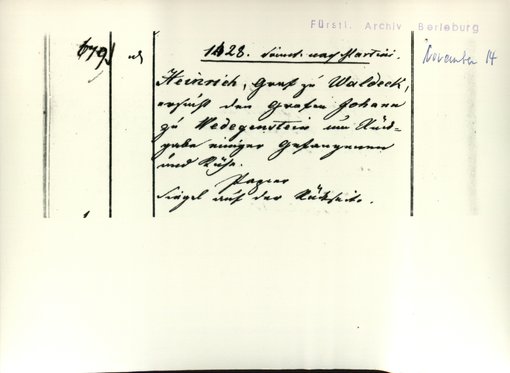 Fürstl. Archiv Berleburg
November 14
679
1428. Sonnt. nach Martini.
Heinrich, Graf zu Waldeck,
ersucht den Grafen Johann
zu Wedegenstein um Rück-
gabe einiger Gefangenen
und Kühe.
Papier
Siegel auf der Rückseite.